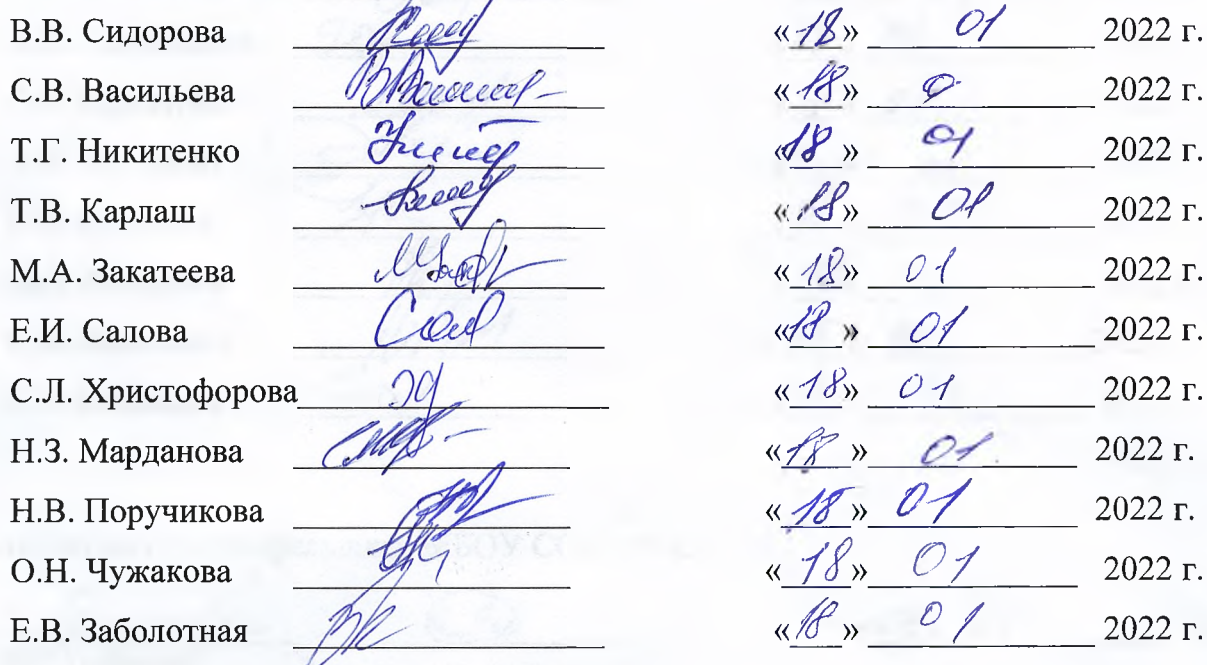 В.В. Сидорова «18» 01 2022 г.
С.В. Васильева «18» 2022 г.
Т.Г. Никитенко «18» 01 2022 г.
Т.В. Карлаш «18» 01 2022 г.
М.А. Закатеева «18» 01 2022 г.
Е.И. Салова «18» 01 2022 г.
С.Л. Христофорова «18» 01 2022 г.
Н.З. Марданова «18» 01 2022 г.
Н.В. Поручикова «18» 01 2022 г.
О.Н. Чужакова «18» 01 2022 г.
Е.В. Заболотная «18» 01 2022 г.